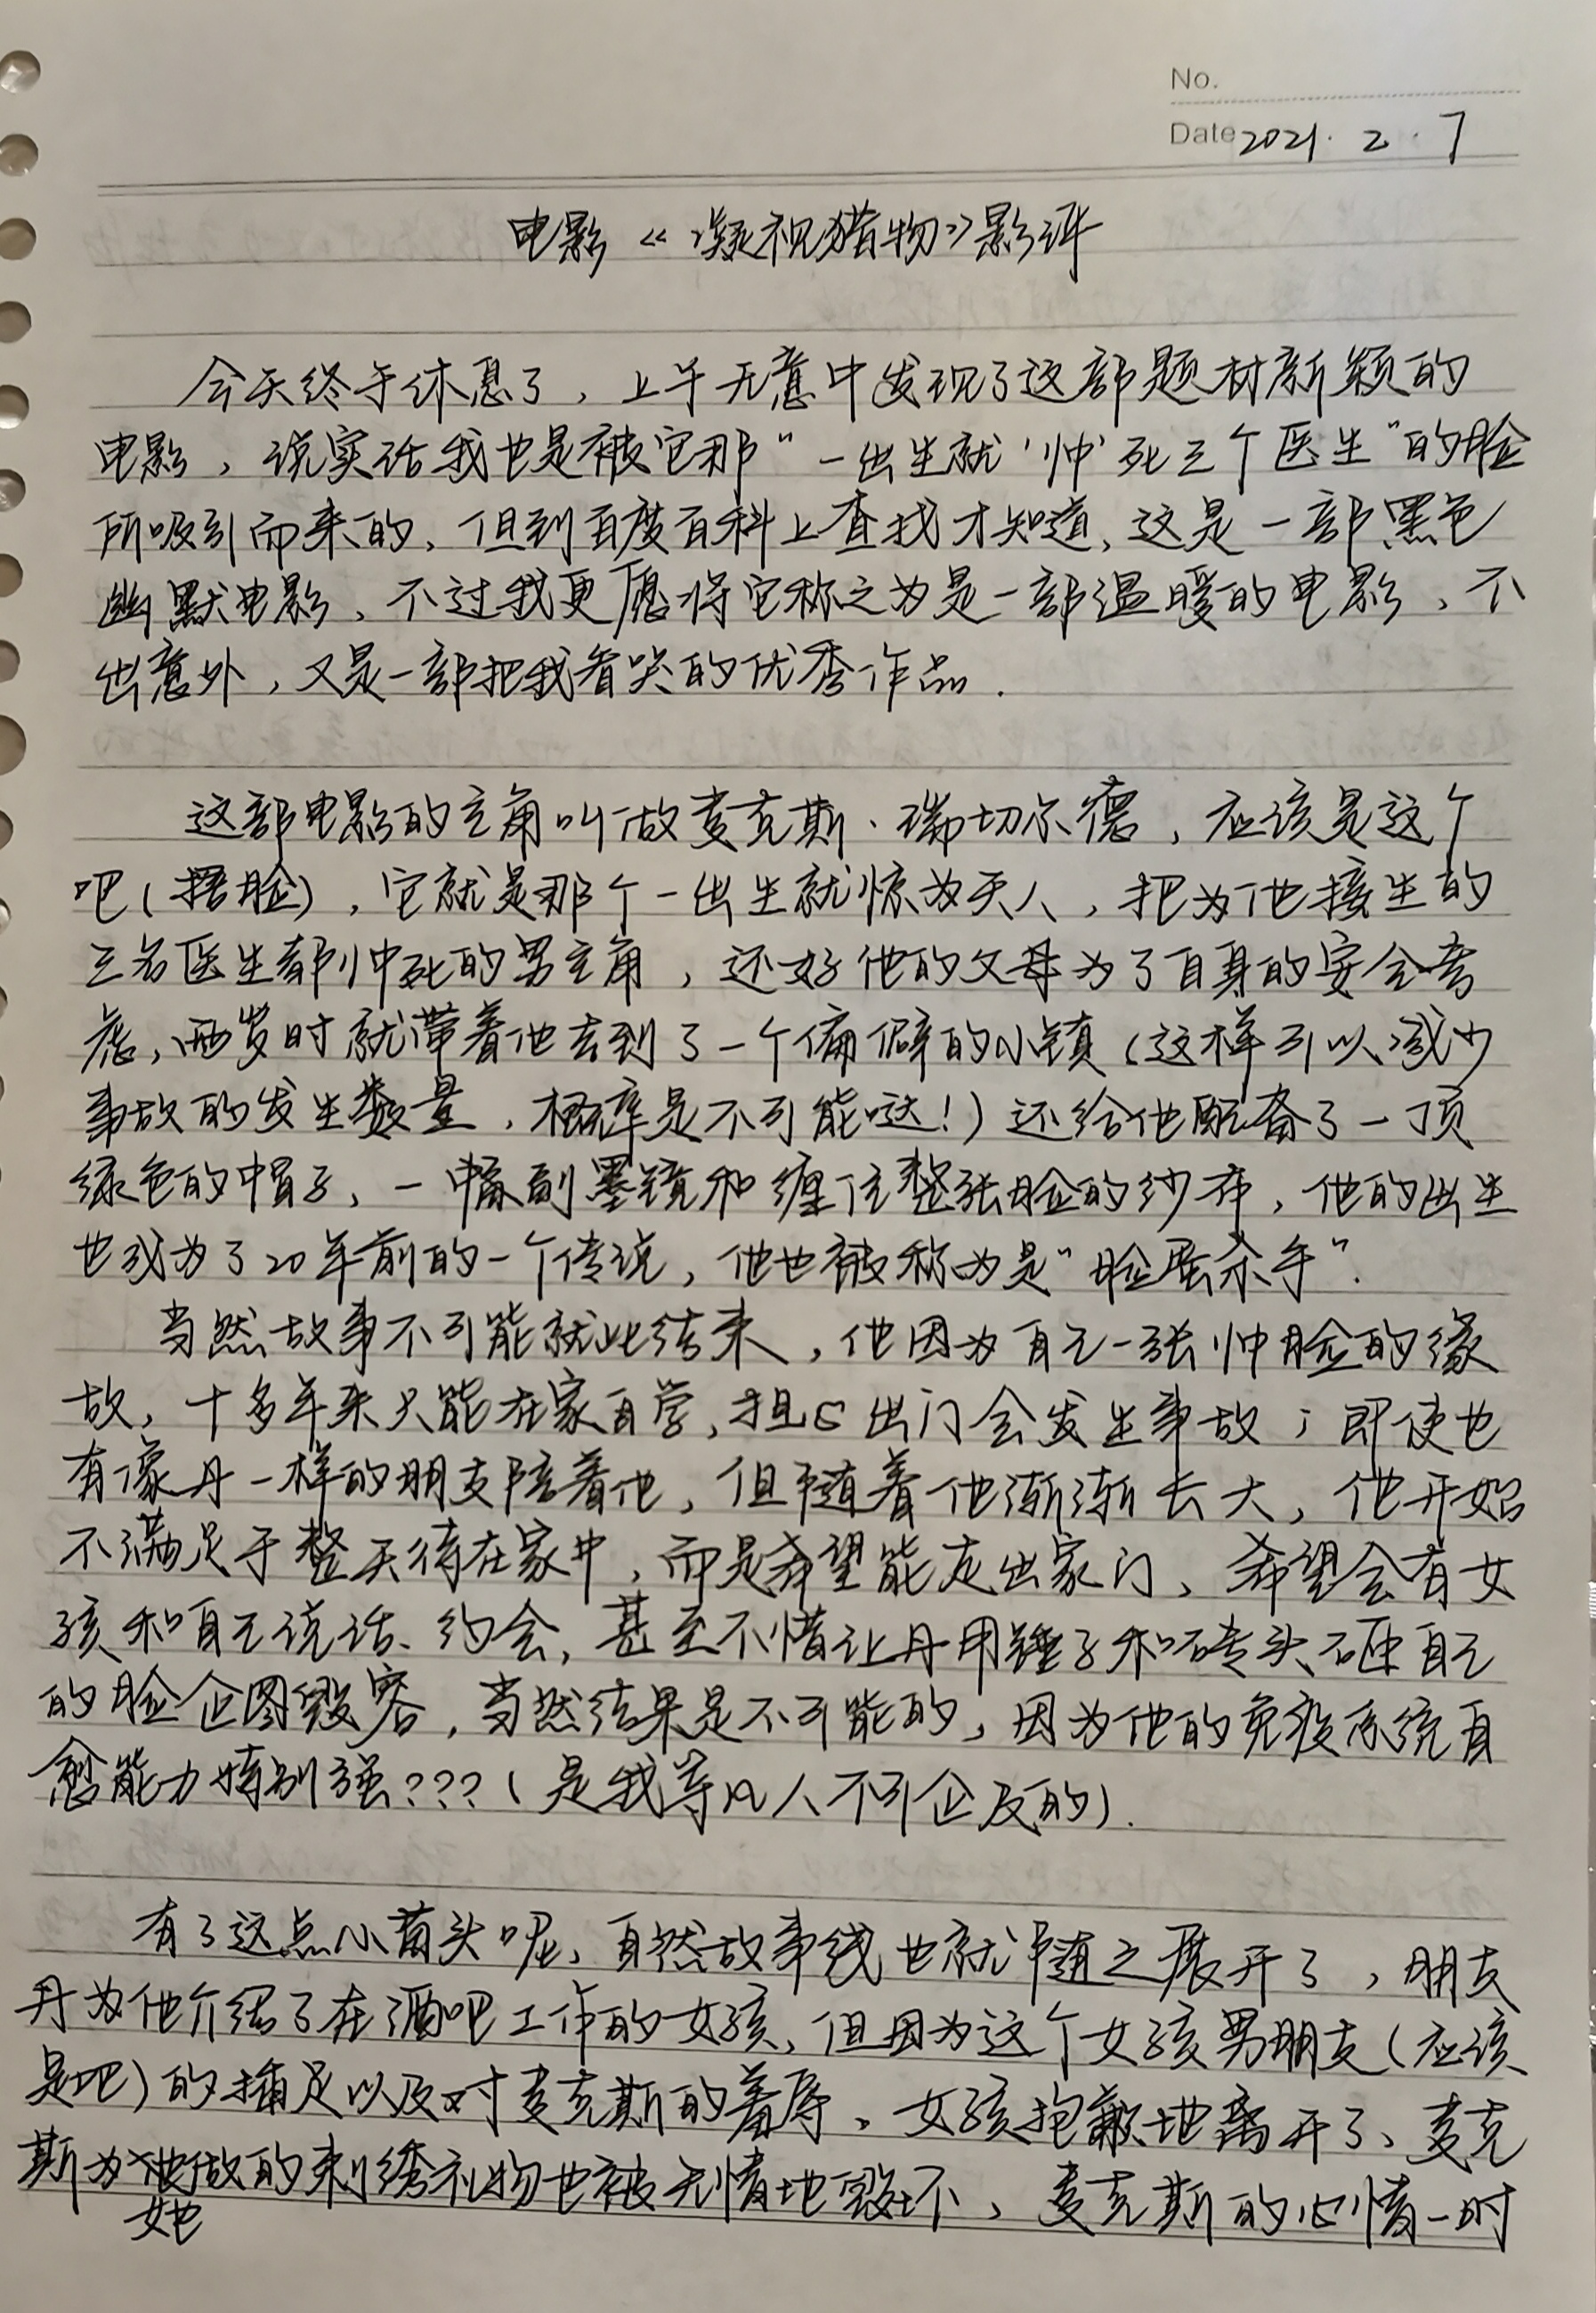 No.
Date 2021.2.7
电影《凝视猎物》影评
今天终于休息了，上午无意中发现了这部题材新颖的
电影，说实话我也是被它那“一出生就‘帅’死三个医生”的脸
所吸引而来的，但到百度百科上查找才知道，这是一部黑色
幽默电影，不过我更愿将它称之为是一部温暖的电影，不
出意外，又是一部把我看哭的优秀作品.
这部电影的主角叫做麦克斯·瑞切尔德，应该是这个
吧(捂脸)，它就是那个一出生就惊为天人，把为他接生的
三名医生都帅死的男主角，还好他的父母为了自身的安全考
虑，两岁时就带着他去到了一个偏僻的小镇(这样可以减少
事故的发生数量，概率是不可能哒！)还给他配备了一顶
绿色的帽子、一副墨镜和缠住整张脸的纱布，他的出生
也成为了20年前的一个传说，他也被称为是“脸蛋杀手”.
当然故事不可能就此结束，他因为自己一张帅脸的缘
故，十多年来只能在家自学，担心出门会发生事故；即使也
有像丹一样的朋友陪着他，但随着他渐渐长大，他开始
不满足于整天待在家中，而是希望能走出家门、希望会有女
孩和自己说话、约会，甚至不惜让丹用锤子和砖头砸自己
的脸企图毁容，当然结果是不可能的，因为他的免疫系统自
愈能力特别强???(是我等凡人不可企及的).
有了这点小苗头呢，自然故事线也就随之展开了，朋友
丹为他介绍了在酒吧工作的女孩，但因为这个女孩男朋友(应该
是吧)的插足以及对麦克斯的羞辱，女孩抱歉地离开了、麦克
斯为她做的刺绣礼物也被无情地毁坏，麦克斯的心情一时